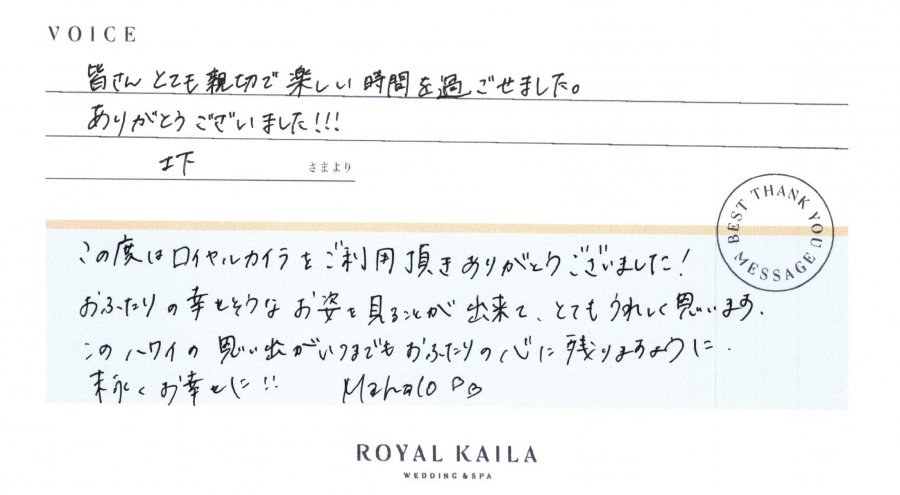 VOICE
皆さん とても親切で楽しい時間を過ごせました。
ありがとうございました!!!
土下 さまより
BEST THANK YOU MESSAGE
この度はロイヤルカイラをご利用頂きありがとうございました!
おふたりの幸せそうなお姿を見ることが出来て、とてもうれしく思います.
このハワイの思い出がいつまでもおふたりの心に残りますように.
末永くお幸せに!! Mahalo
ROYAL KAILA
WEDDING & SPA